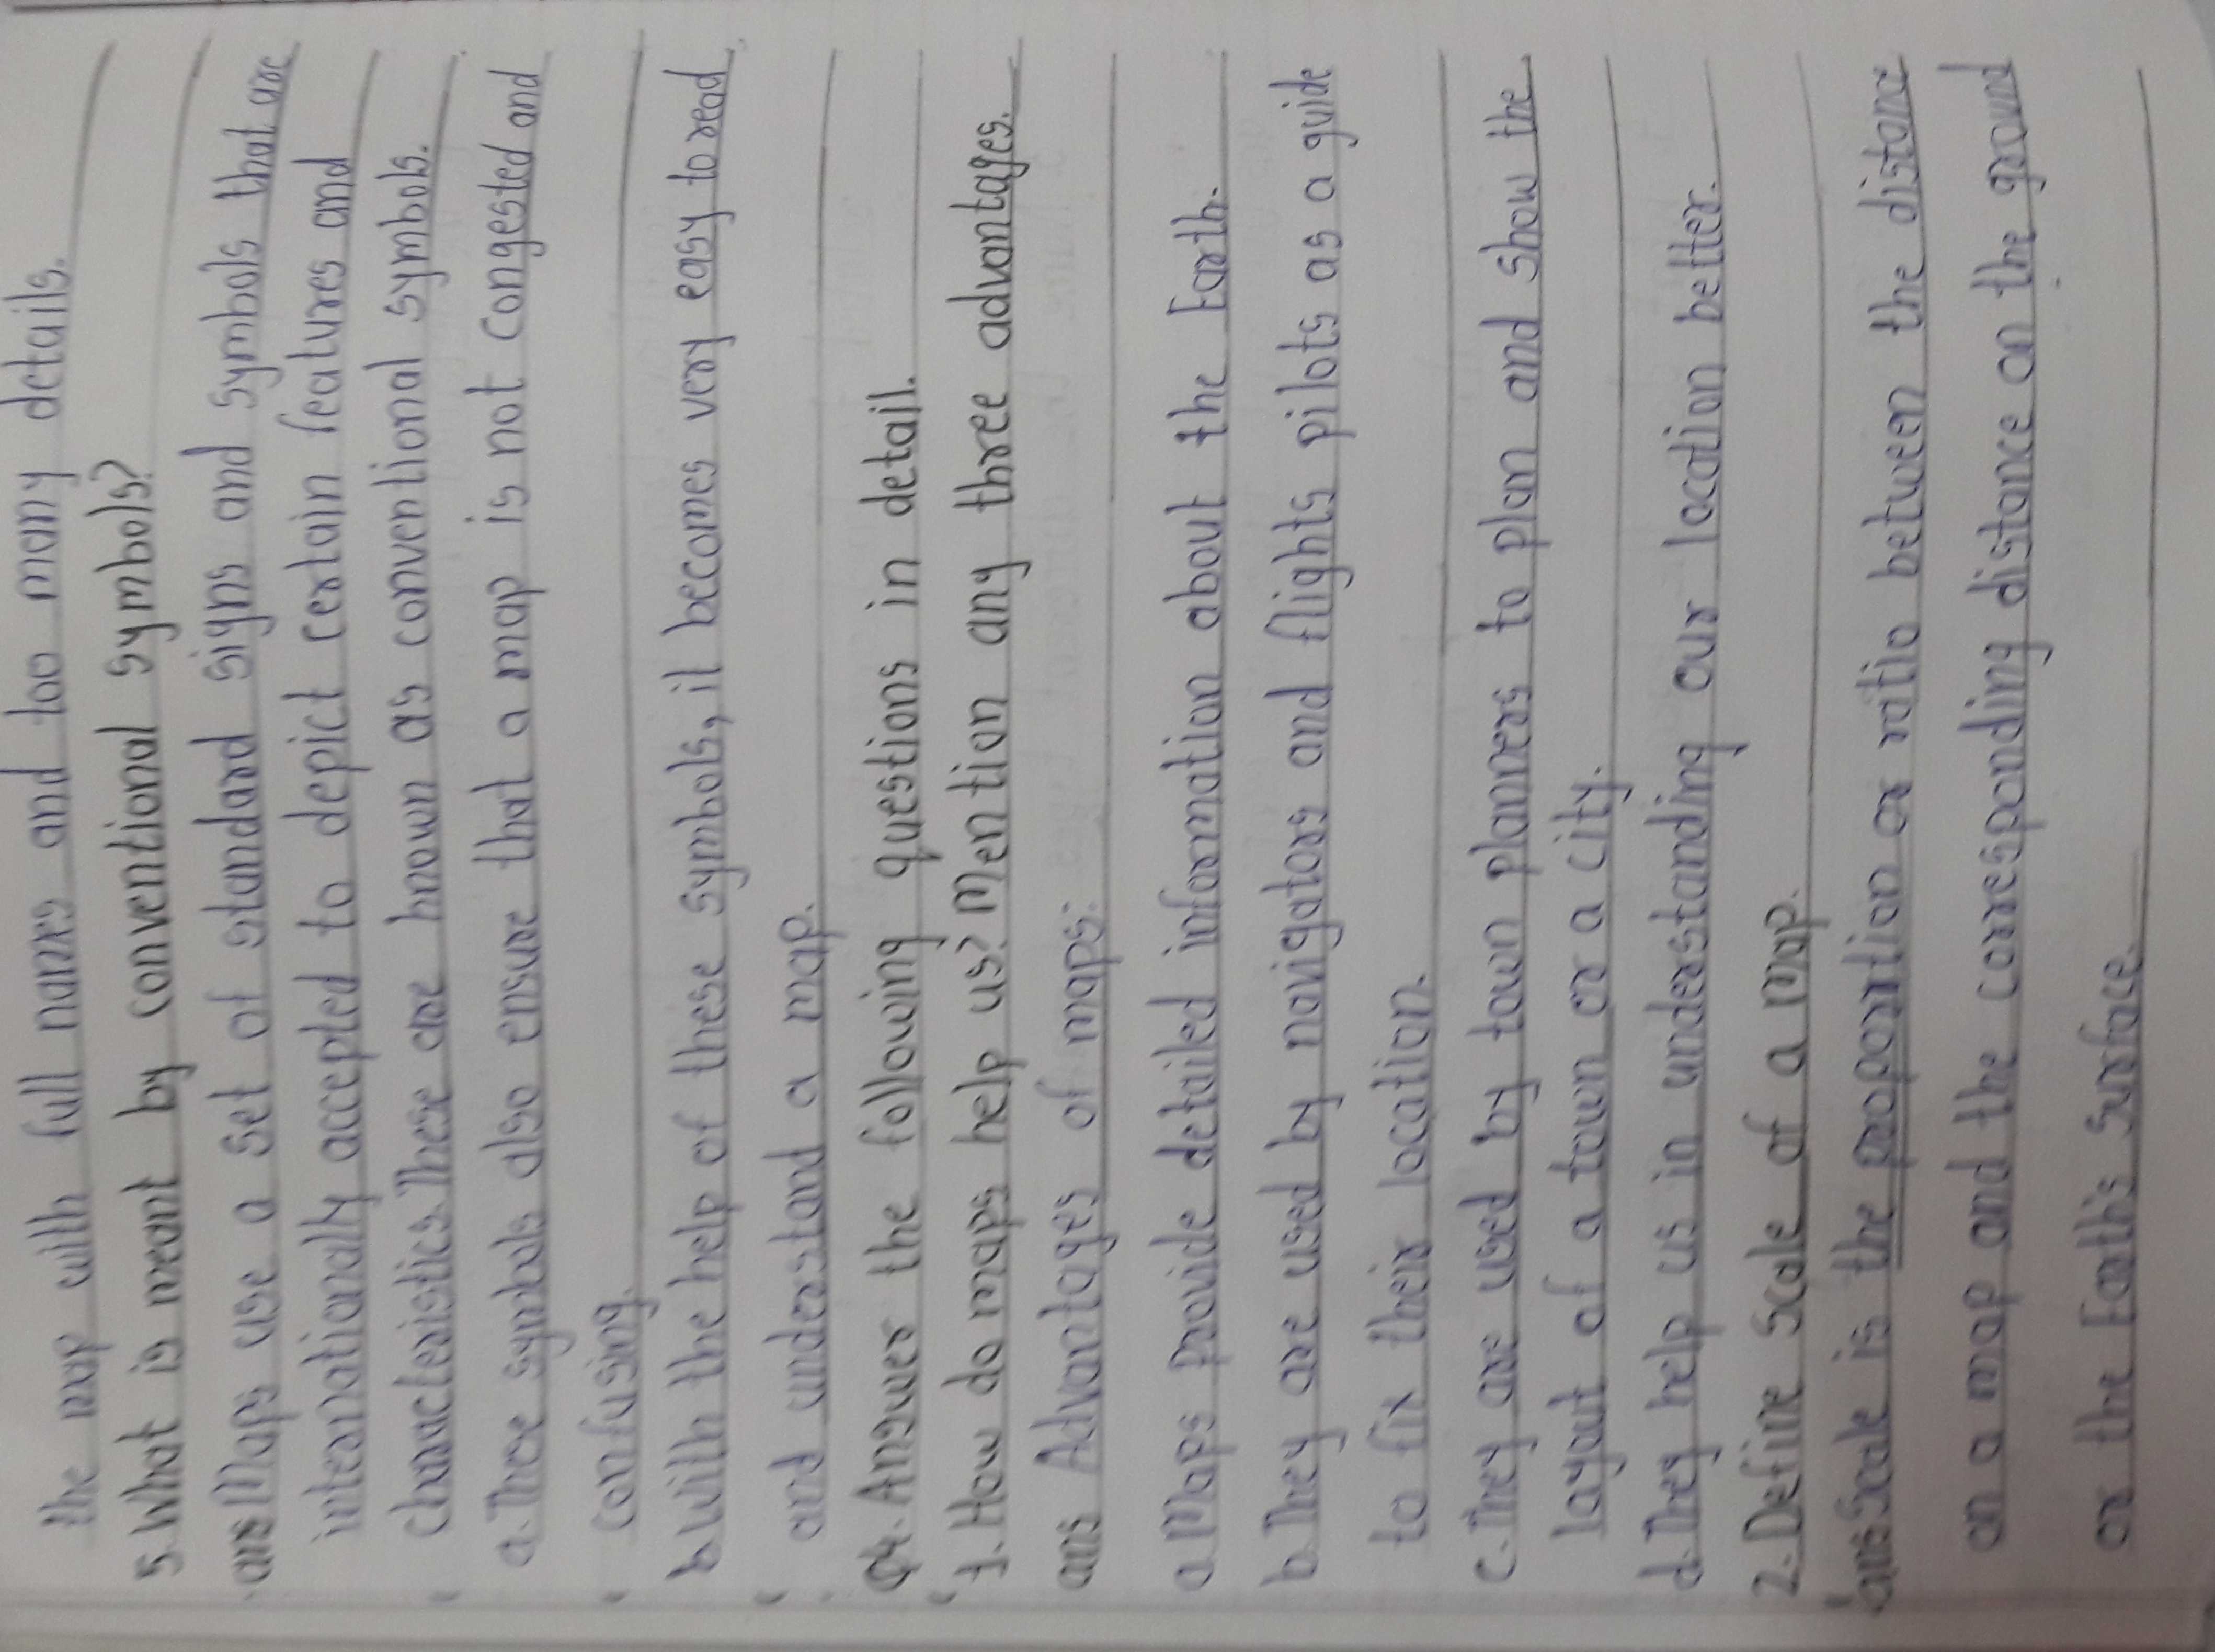 the map with full names and too many details.
5. What is meant by conventional symbols?
ans Maps use a set of standard signs and symbols that are
internationally accepted to depict certain features and
characteristics. These are known as conventional symbols.
a. These symbols also ensure that a map is not congested and
confusing.
b. With the help of these symbols, it becomes very easy to read
and understand a map.
Q4. Answer the following questions in detail.
1. How do maps help us? Mention any three advantages.
ans Advantages of maps:
a. Maps provide detailed information about the Earth.
b. They are used by navigators and flights pilots as a guide
to fix their location.
c. They are used by town planners to plan and show the
layout of a town or a city.
d. They help us in understanding our location better.
2. Define Scale of a Map.
ans Scale is the proportion or ratio between the distance
on a map and the corresponding distance on the ground
or the Earth's surface.